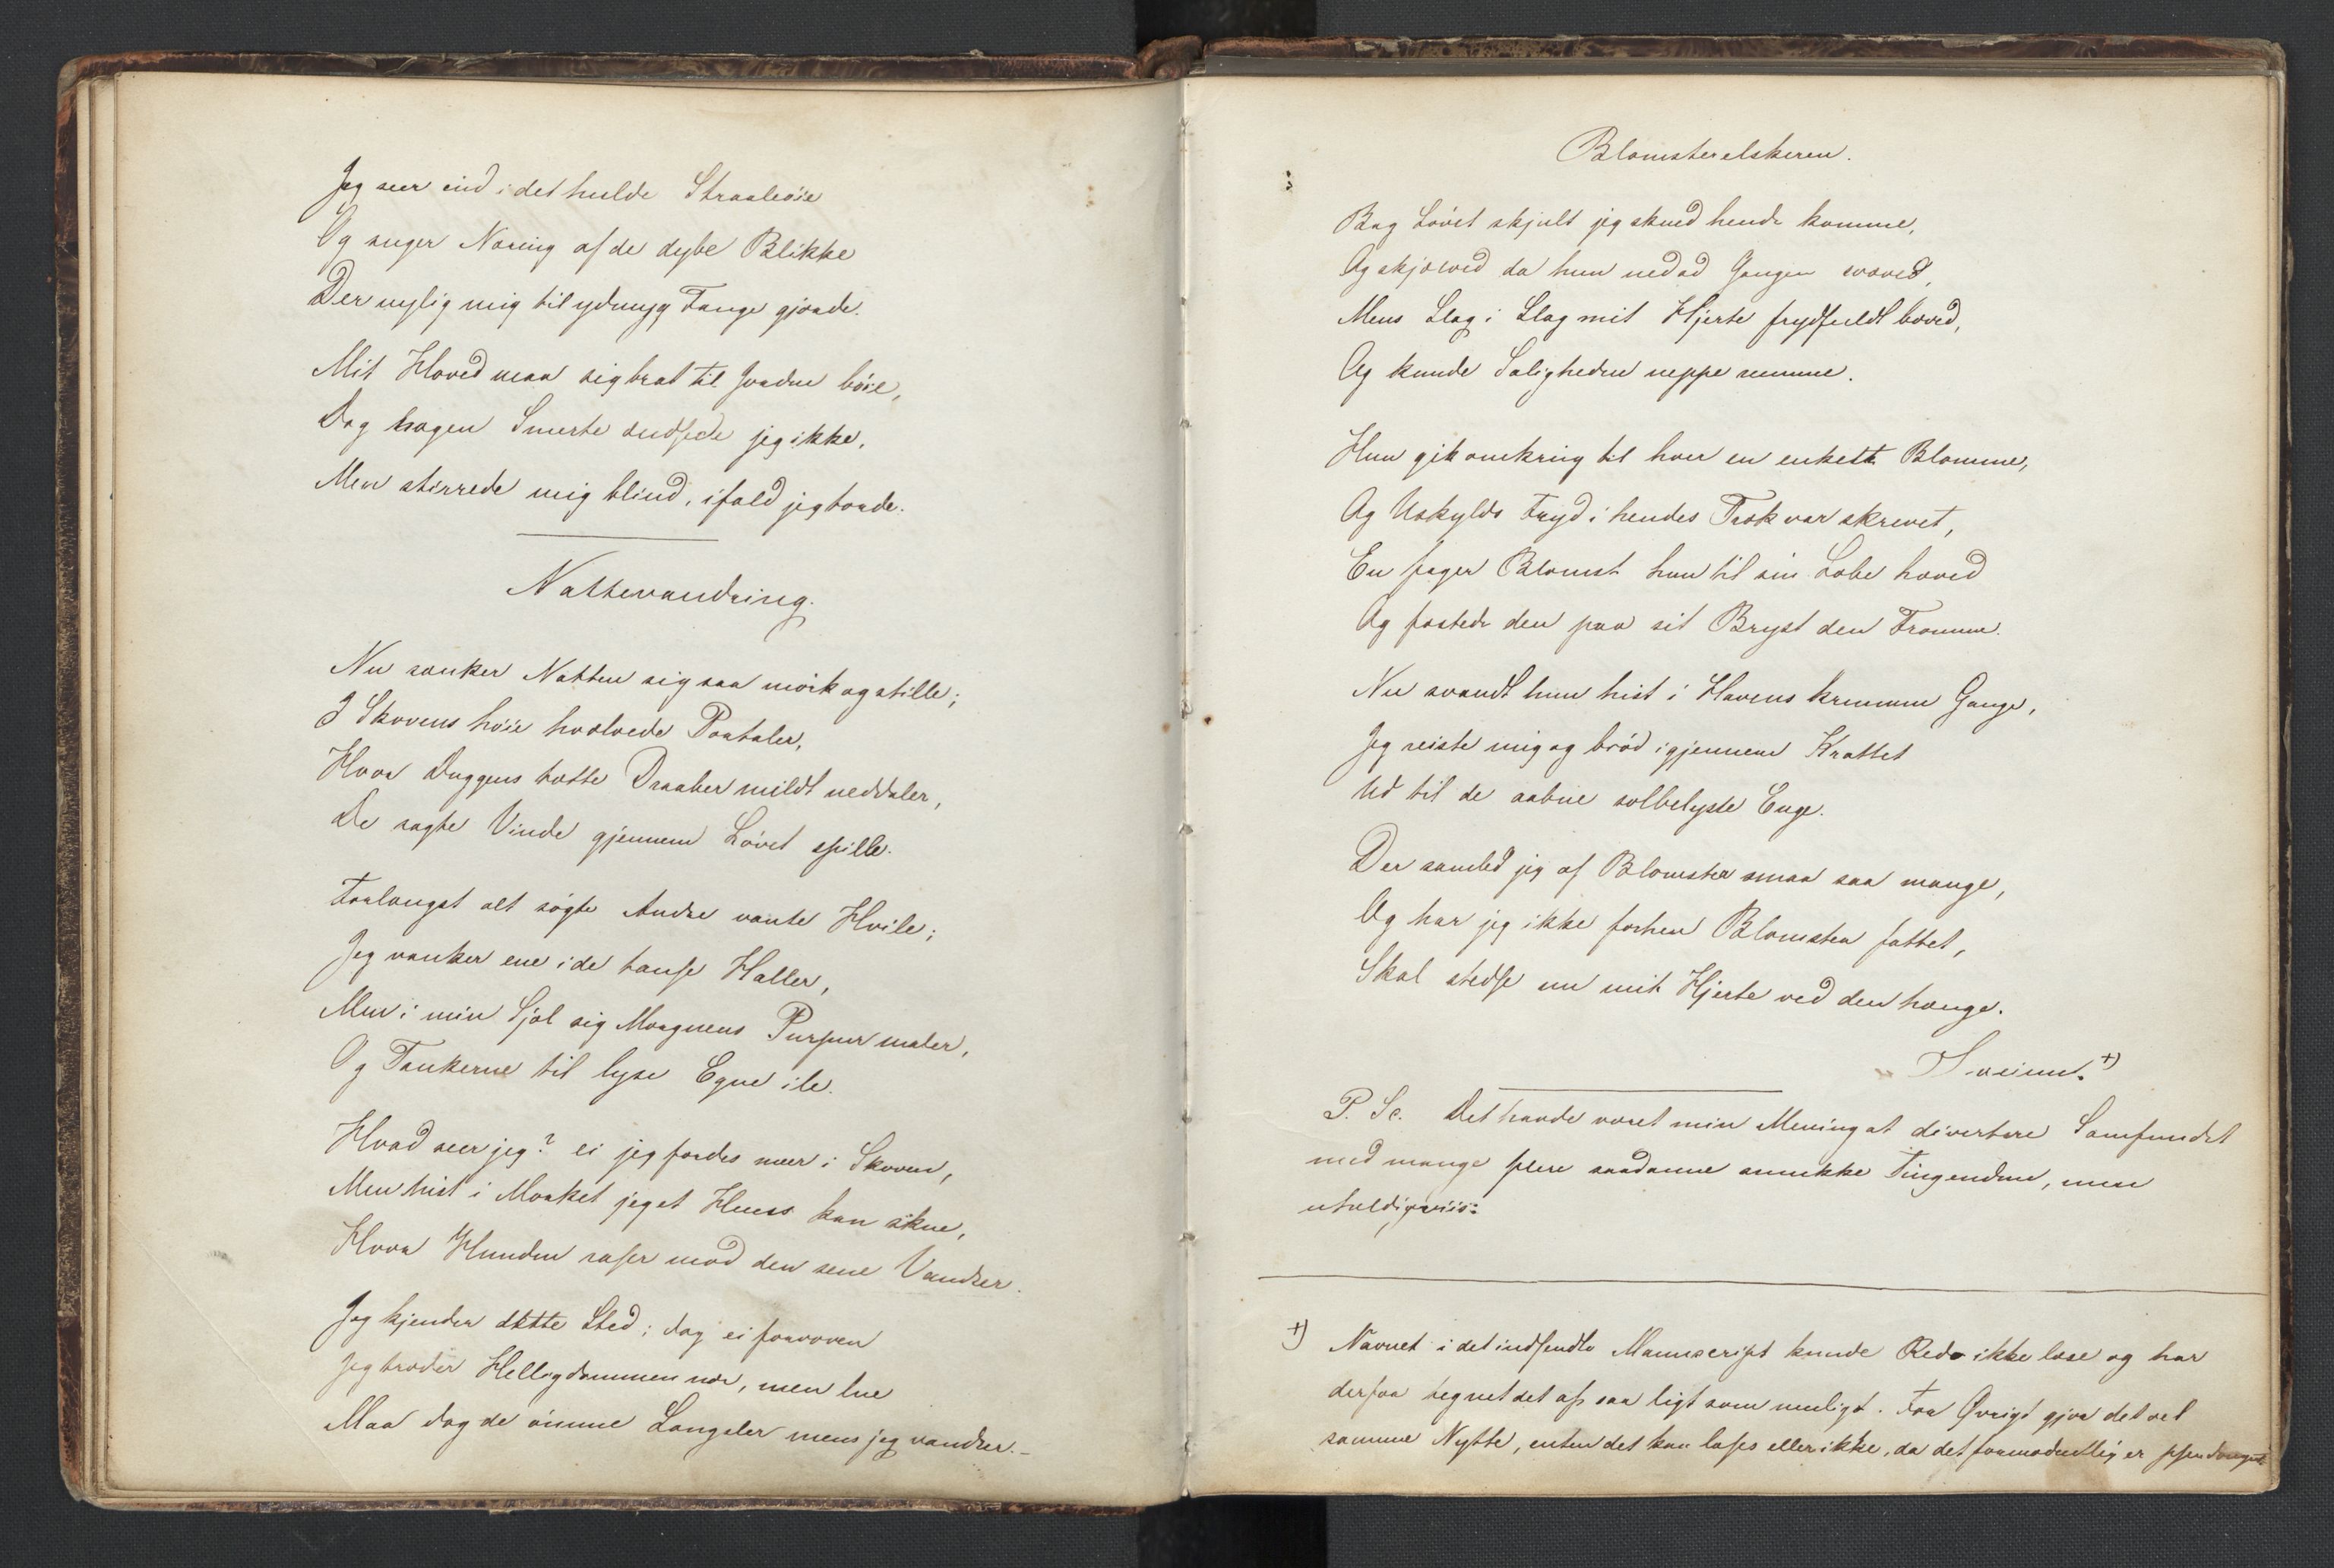 Jeg seer ind i det hulde Straaleöie
Og suger Næring af de dybe Blikke
Der nylig mig til ydmyg Fange gjorde.
Mit Hoved maa sig brat til Jorden böie,
Dog nogen Smerte ændsede jeg ikke,
Men stirrede mig blind, ifald jeg torde.
Nattevandring.
Nu sænker Natten sig saa mörk og stille;
I Skovens höie hvælvede Portaler,
Hvor Duggens tætte Draaber mildt neddaler,
De sagte Vinde gjennem Lövet spille.
Forlængst alt sögte Andre vante Hvile;
Jeg vanker ene i de tause Haller,
Men i min Sjæl sig Morgnens Purpur maler,
Og Tankerne til lyse Egne ile.
Hvad seer jeg? ei jeg færdes meer i Skoven,
Men hist i Mörket jeg et Huus kan skue,
Hvor Hunden raser mod den sene Vandrer.
Jeg kjender dette Sted; dog ei forvoven
Jeg træder Helligdommen nær, men lue
Maa dog de ömme Længsler mens jeg vandrer.-
Blomsterelskeren.
Bag Lövet skjult jeg skued hende komme,
Og skjælved da hun nedad Gangen svæved,
Mens Slag i Slag mit Hjerte frydfuldt bæved,
Og kunde Saligheden neppe rumme.
Hun gik omkring til hver en enkelt Blomme,
Og Uskylds Fryd i hendes Træk var skrevet,
En fager Blomst hun til sin Læbe hæved
Og fæsted den paa sit Bryst den Fromme.
Nu svandt hun hist i Havens krumme Gange,
Jeg reiste mig og bröd igjennem Krattet
Ud til de aabne solbelyste Enge.
Der samled jeg af Blomster smaa saa mange,
Og har jeg ikke förhen Blomsten fattet,
Skal stedse nu mit Hjerte ved den hænge.
+)
P. Sc. Det havde været min Mening at divertere Samfundet
med mange flere saadanne smukke Tingender, men
uheldigviis:
+) Navnet i det indsendte Manuscript kunde Red. ikke læse og har
derfor tegnet det af saa ligt som muligt. For Øvrigt gjör det vel
samme Nytte, enten det kan læses eller ikke, da det formodentlig er pseudonymt.